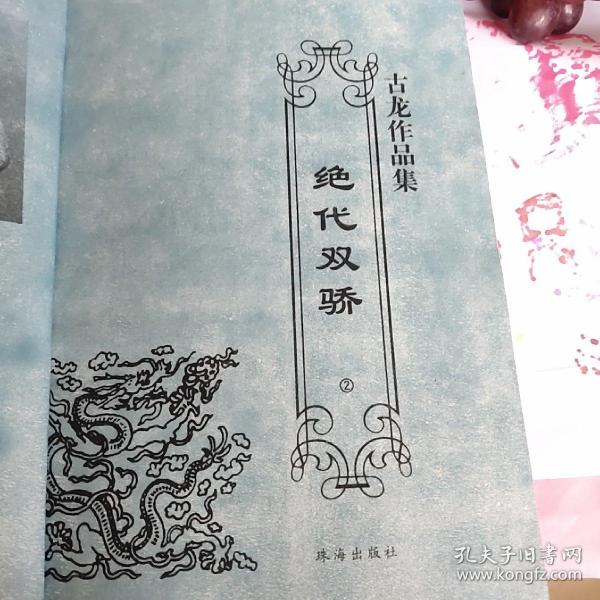 古龙作品集
绝代双骄
②
珠海出版社
孔夫子旧书网
www.kongfz.com